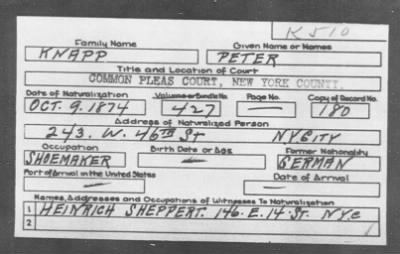 K510
Family Name Given Name or Names
KNAPP PETER
Title and Location of Court
COMMON PLEAS COURT, NEW YORK COUNTY.
Date of Naturalization Volume or Bundle No. Page No. Copy of Record No.
OCT. 9. 1874 427 — 180
Address of Naturalized Person
243. W. 46TH St NYCITY
Occupation Birth Date or Age Former Nationality
SHOEMAKER — GERMAN
Port of Arrival in the United States Date of Arrival
— —
Names, Addresses and Occupations of Witnesses To Naturalization
1 HEINRICH SHEPPERT. 146. E. 14. St. NYC
2